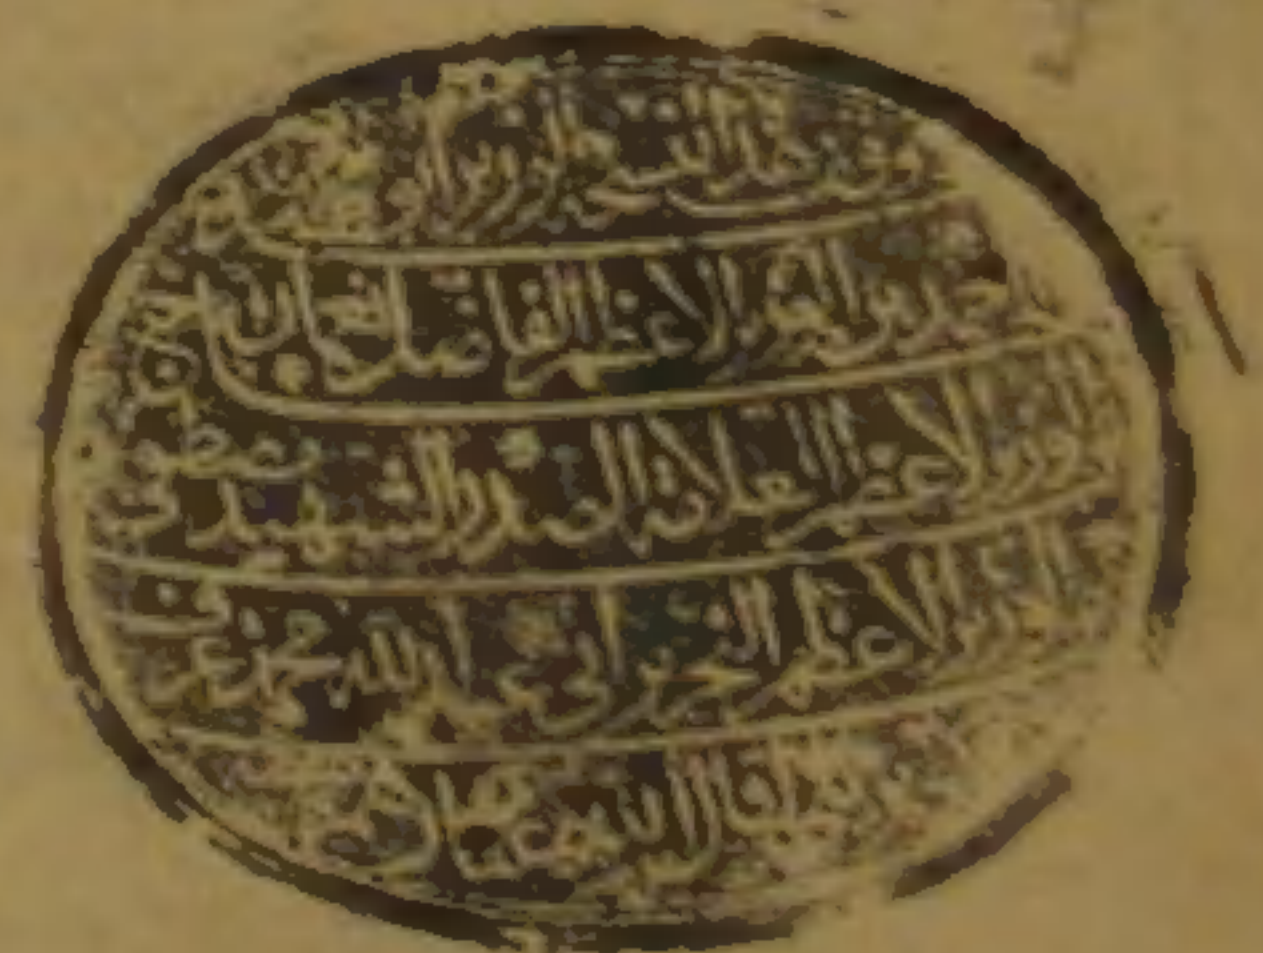 وقف هذه النسخة الوزير ابو
احمد بن الوزير الاعظم الفاضل نعمان بن
الوزير الاعظم العلامة الصدر الشهيد مصطفى
الوزير الاعظم النحرير ابي عبد الله محمد عرف
اقال الله